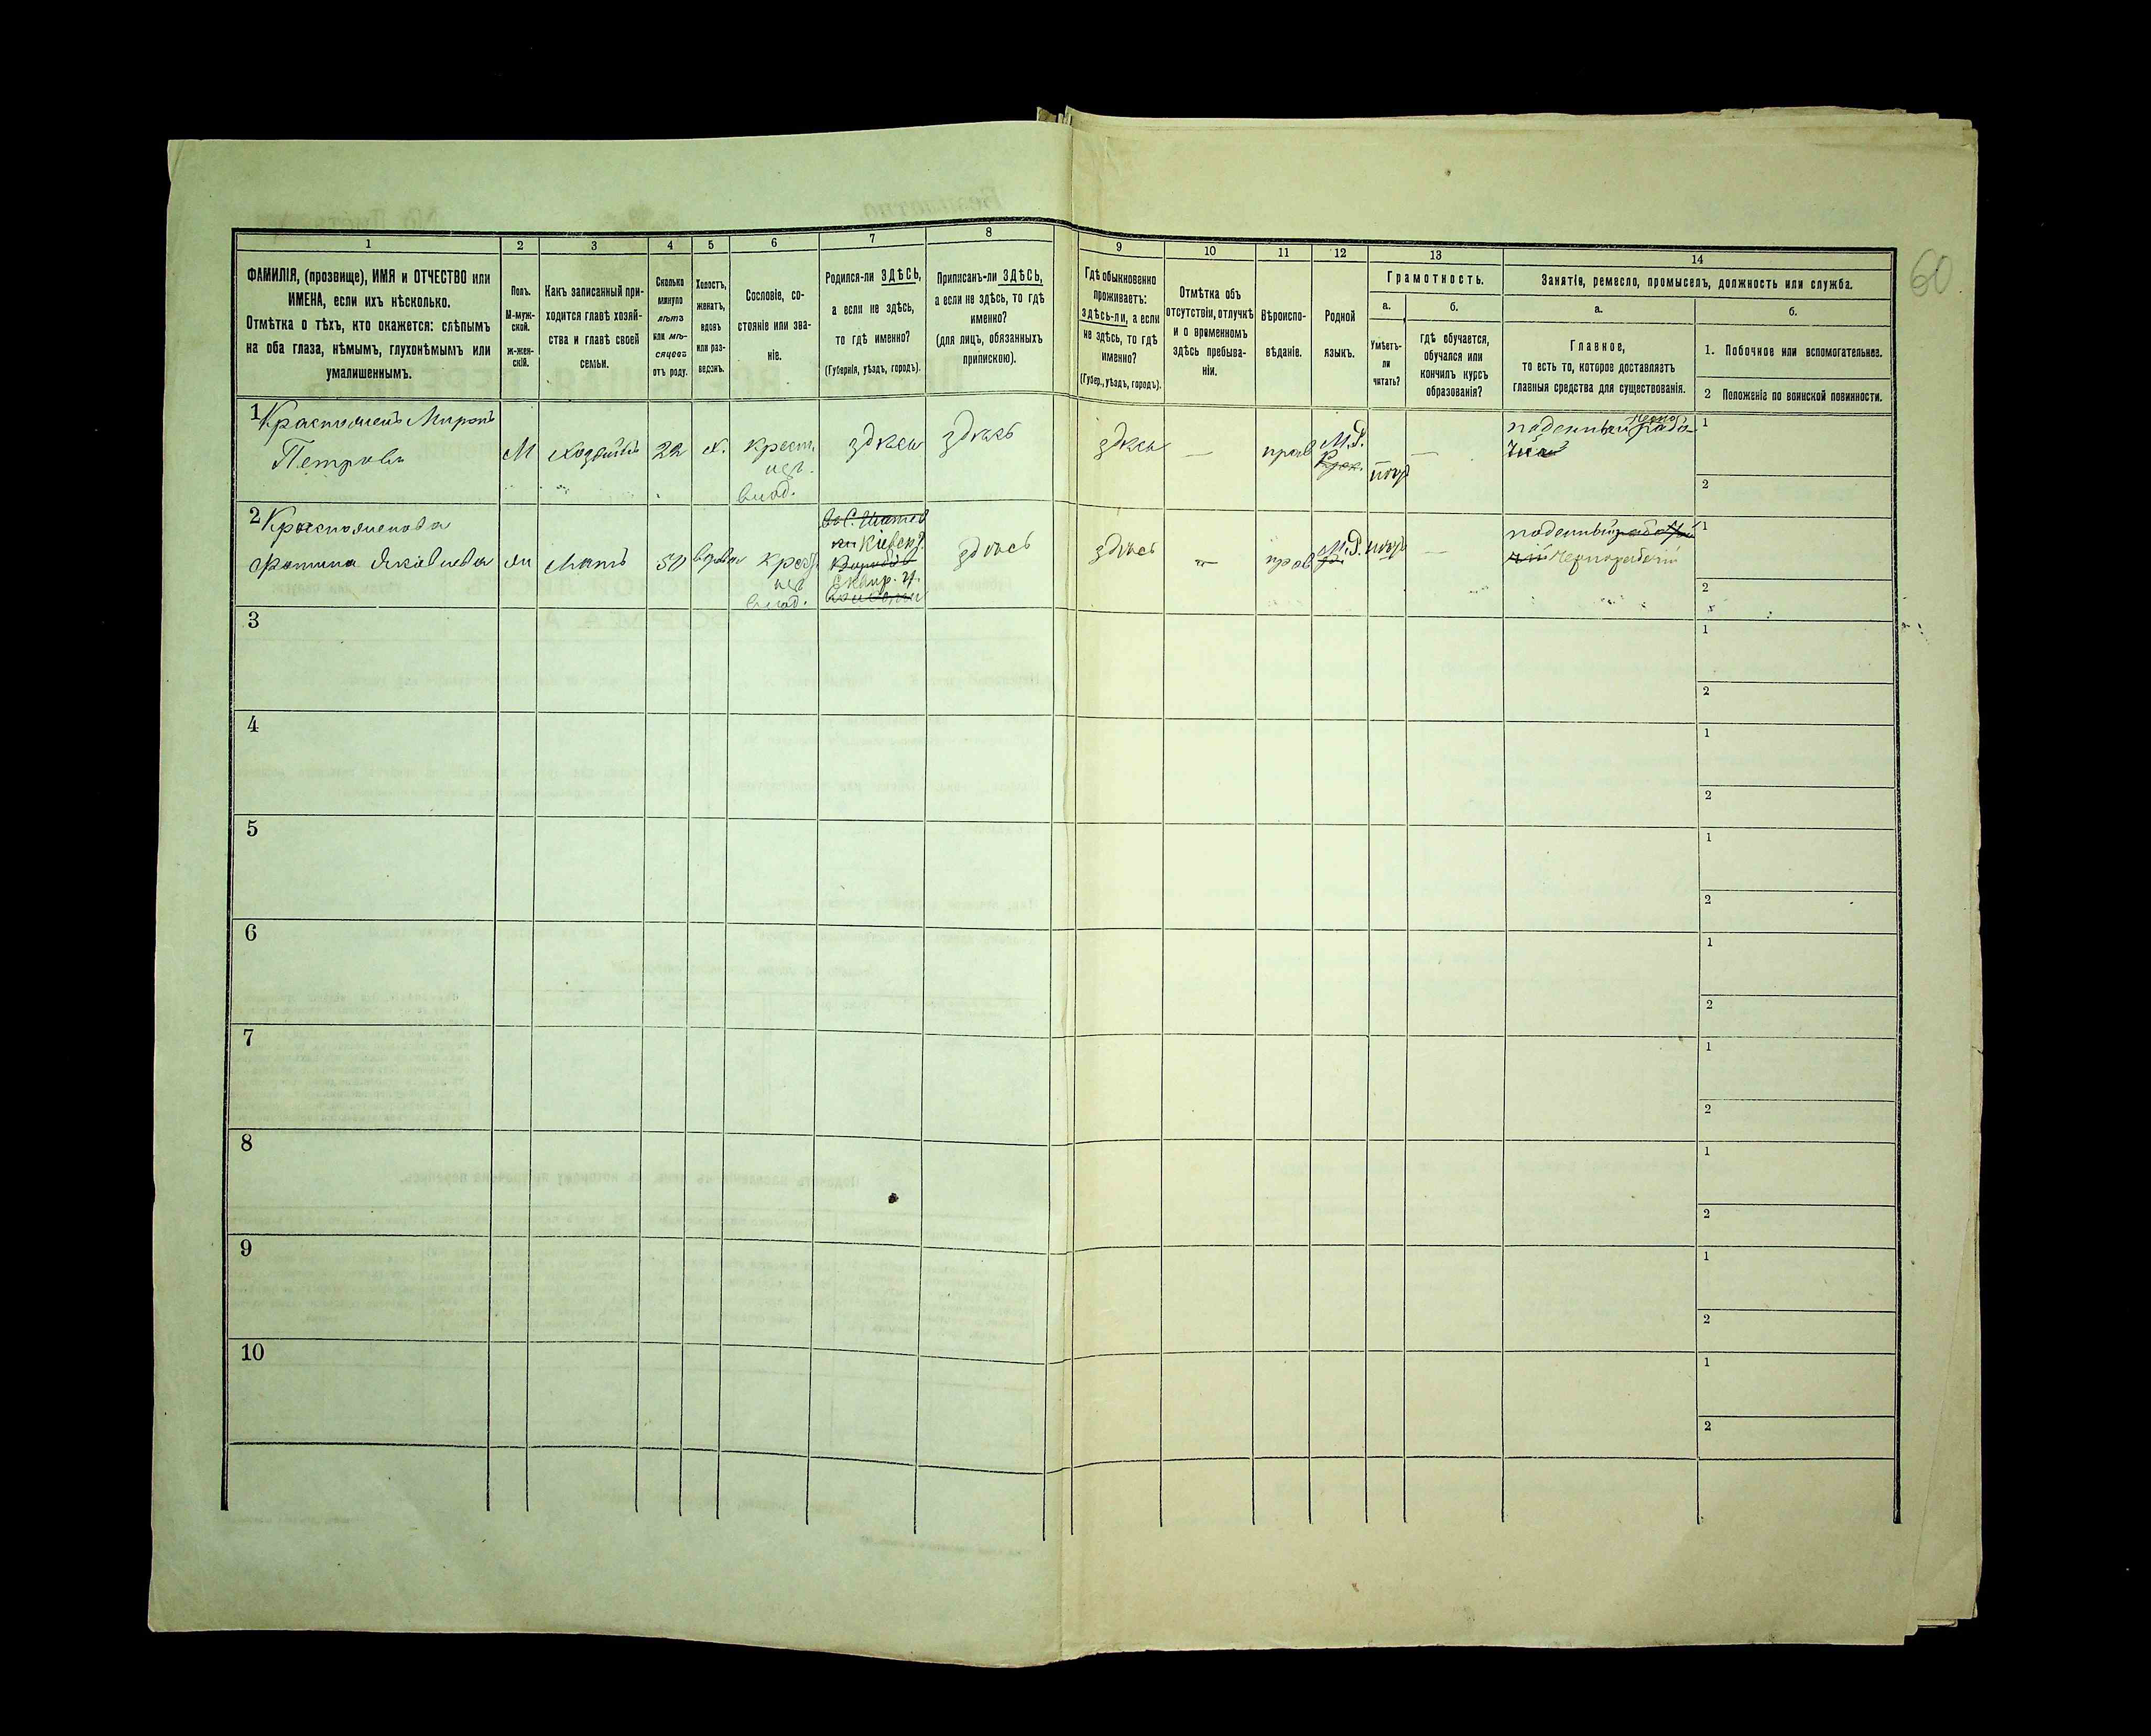 60
1 2 3 4 5 6 7 8 9 10 11 12 13 14
ФАМИЛІЯ, (прозвище), ИМЯ и ОТЧЕСТВО или
ИМЕНА, если ихъ нѣсколько.
Отмѣтка о тѣхъ, кто окажется: слѣпымъ
на оба глаза, нѣмымъ, глухонѣмымъ или
умалишеннымъ.
Полъ.
М-муж-
ской.
ж-жен-
скій.
Какъ записанный при-
ходится главѣ хозяй-
ства и главѣ своей
семьи.
Сколько
минуло
лѣтъ
или мѣ-
сяцевъ
отъ роду.
Холостъ,
женатъ,
вдовъ
или раз-
веденъ.
Сословіе, со-
стояніе или зва-
ніе.
Родился-ли ЗДѢСЬ,
а если не здѣсь,
то гдѣ именно?
(Губернія, уѣздъ, городъ).
Приписанъ-ли ЗДѢСЬ,
а если не здѣсь, то гдѣ
именно?
(для лицъ, обязанныхъ
припискою).
Гдѣ обыкновенно
проживаетъ:
здѣсь-ли, а если
не здѣсь, то гдѣ
именно?
(Губер., уѣздъ, городъ).
Отмѣтка объ
отсутствіи, отлучкѣ
и о временномъ
здѣсь пребыва-
ніи.
Вѣроиспо-
вѣданіе.
Родной
языкъ.
Грамотность.
а. б.
Умѣетъ-
ли
читать?
гдѣ обучается,
обучался или
кончилъ курсъ
образованія?
Занятія, ремесло, промыселъ, должность или служба.
а. б.
Главное,
то есть то, которое доставляетъ
главныя средства для существованія.
1. Побочное или вспомогательное.
2 Положеніе по воинской повинности.
1 Миронъ
Петровъ
М Хозяинъ 22 х. крест. здѣсь здѣсь здѣсь — прав М.Р. —
влад.
поденный
1
2
2
Яковлева
мать 50 вдова крест.
влад.
Кіевск.
здѣсь здѣсь — прав М.Р. —
поденный
чернорабочій
1
2
3
1
2
4
1
2
5
1
2
6
1
2
7
1
2
8
1
2
9
1
2
10
1
2